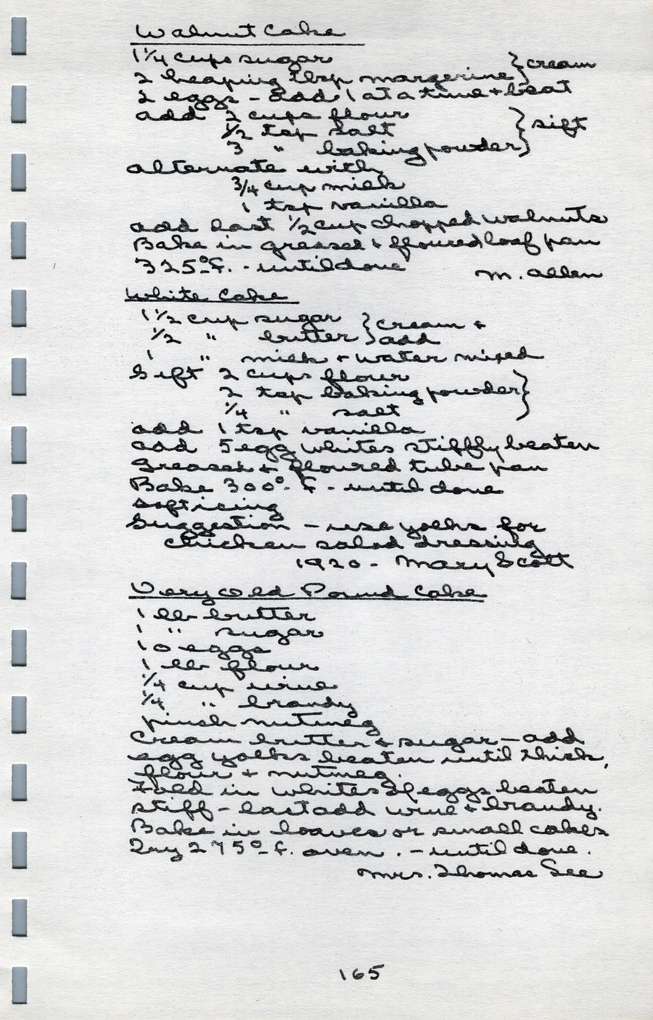 Walnut Cake
1 1/4 cups sugar } cream
2 heaping tbsp margerine }
2 eggs - add 1 at a time + beat
add 2 cups flour
1/2 tsp salt } sift
3 " baking powder }
alternate with
3/4 cup milk
1 tsp vanilla
add last 1/2 cup chopped walnuts
Bake in greased + floured loaf pan
325° F. - until done
M. Allen
White Cake
1 1/2 cup sugar } cream +
1/2 " butter } add
1 " milk + water mixed
Sift 2 cups flour
2 tsp baking powder }
1/4 " salt }
add 1 tsp vanilla
add 5 egg whites stiffly beaten
Greased + floured tube pan
Bake 300° F - until done
soft icing
Suggestion - use yolks for
chicken salad dressing
1920 - Mary Scott
Very Old Pound Cake
1 lb butter
1 " sugar
10 eggs
1 lb flour
1/4 cup wine
1/4 " brandy
pinch nutmeg
Cream butter + sugar - add
egg yolks beaten until thick,
flour + nutmeg.
Fold in whites of eggs beaten
stiff - last add wine + brandy.
Bake in loaves or small cakes
275° F. oven. - until done.
Mrs. Thomas See
165